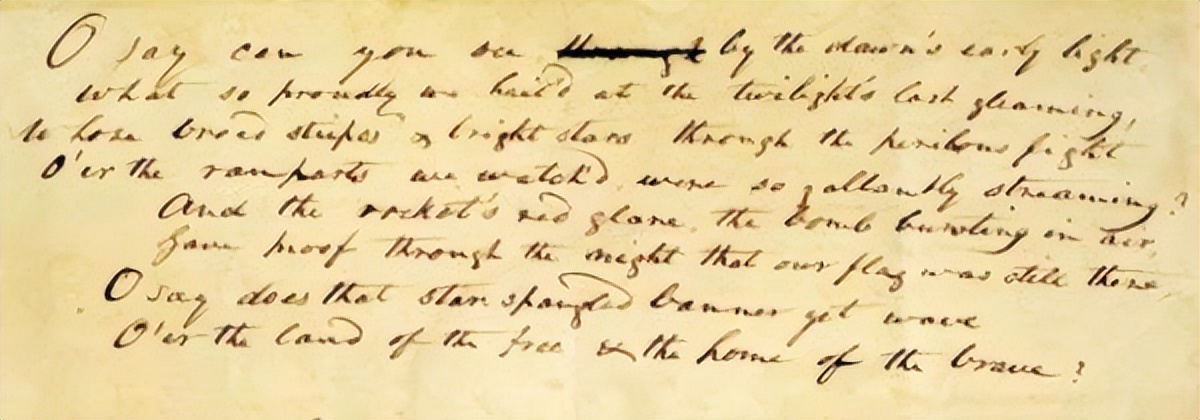 O say can you see ~~through~~ by the dawn's early light
what so proudly we hail'd at the twilight's last gleaming,
Whose broad stripes & bright stars through the perilous fight
O'er the ramparts we watch'd, were so gallantly streaming?
And the rocket's red glare, the bomb bursting in air,
Gave proof through the night that our flag was still there,
O say does that star spangled banner yet wave
O'er the land of the free & the home of the brave?